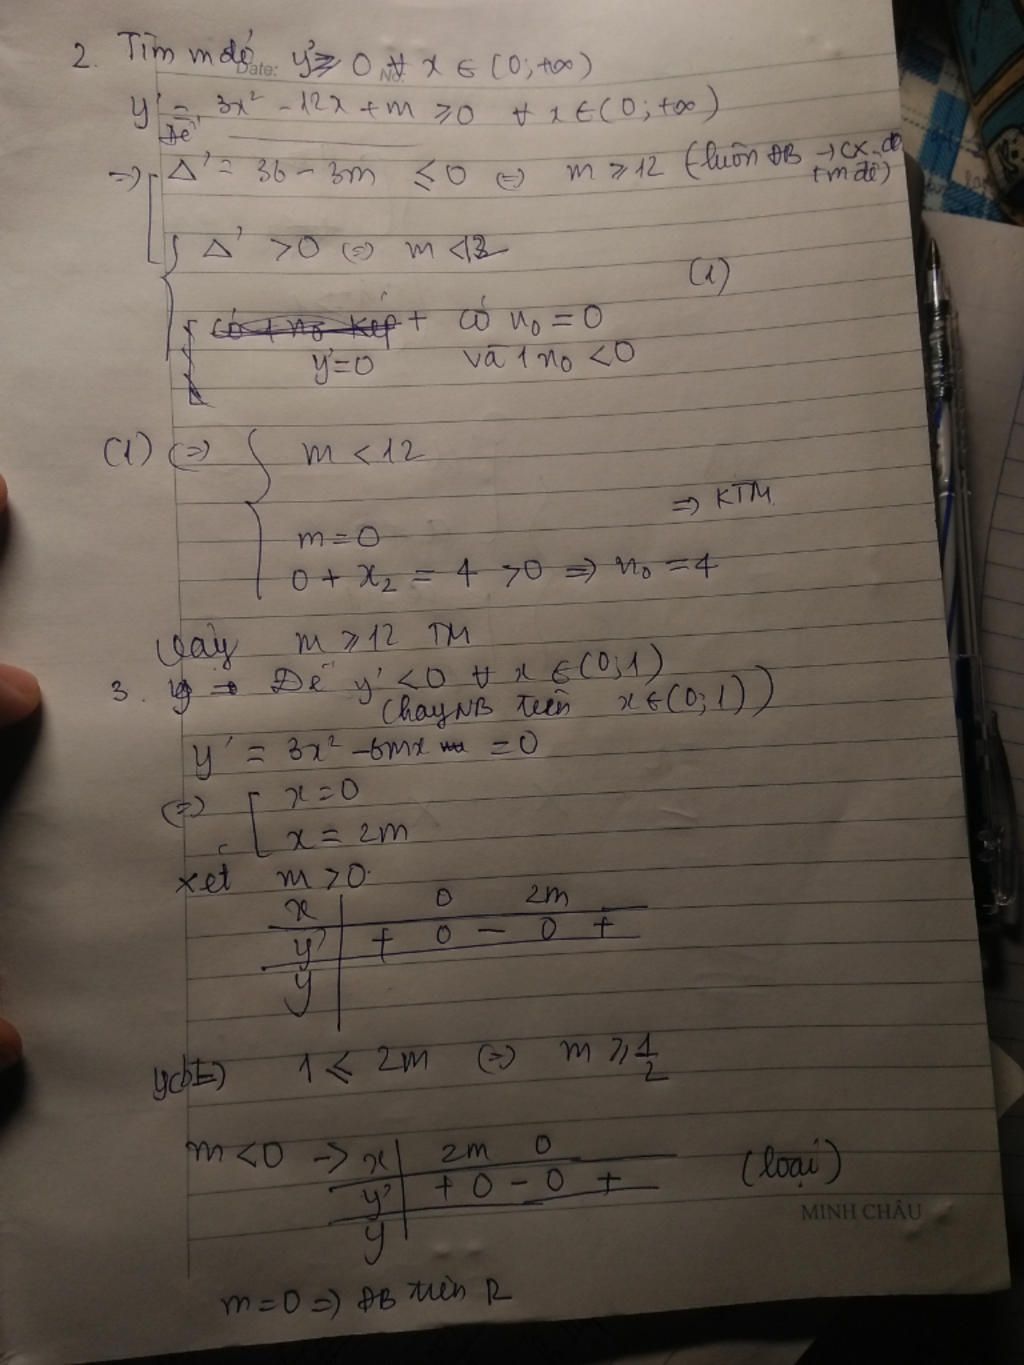 2. Tìm m để y' ≥ 0 ∀ x ∈ (0; +∞)
Date: No.
y' = 3x² - 12x + m ≥ 0 ∀ x ∈ (0; +∞)
Để
=> Δ' = 36 - 3m ≤ 0 <=> m ≥ 12 (luôn ĐB → cx
tm đề)
Δ' > 0 <=> m < 12
(1)
có 1 no kép + có no = 0
y' = 0 và 1 no < 0
(1) <=> m < 12
=> KTM
m = 0
0 + x₂ = 4 > 0 => no = 4
Vậy m ≥ 12 TM
3. Để y' < 0 ∀ x ∈ (0; 1)
(hay NB trên x ∈ (0; 1))
y' = 3x² - 6mx = 0
<=> x = 0
x = 2m
xét m > 0.
x 0 2m
y' + 0 - 0 +
y
ycbt <=> 1 ≤ 2m <=> m ≥ 1/2
m < 0 → x 2m 0
y' + 0 - 0 + (loại)
y
MINH CHÂU
m = 0 => ĐB trên R